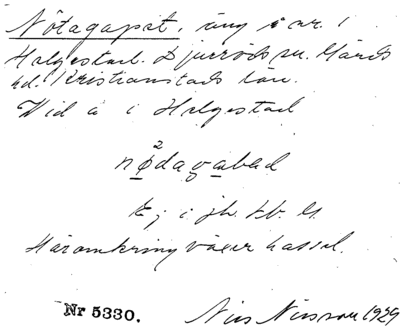 Nötagapet, äng i nr. 1
Helgestad. Djurröds sn. Gärds
hd. Kristianstads län.
Vid å i Helgestad
nø²dagabad
Ej i jb. Kb. G.
Häromkring växer hassel.
Nr 5330. Nils Nilsson 1929